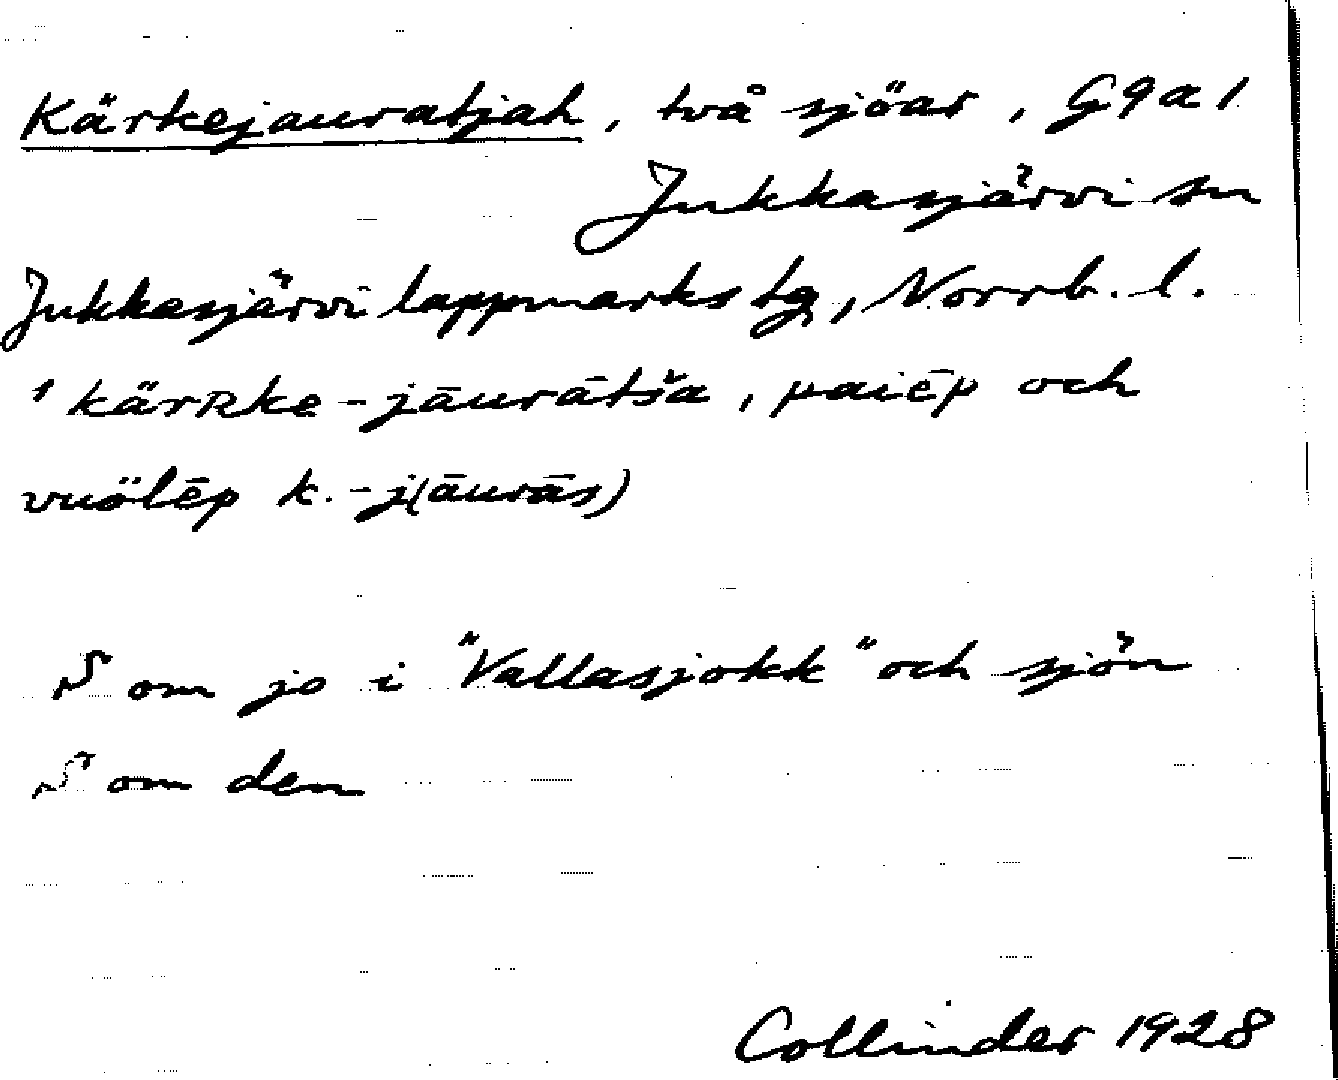 Kärkejauratjah, två sjöar, G9a1
Jukkasjärvi sn
Jukkasjärvi lappmarks tg, Norrb. l.
1 kärʀke-jāurātša, paiēp och
vuölēp k.-j(āurās)
S om jo i "Vallasjokk" och sjön
S om den
Collinder 1928